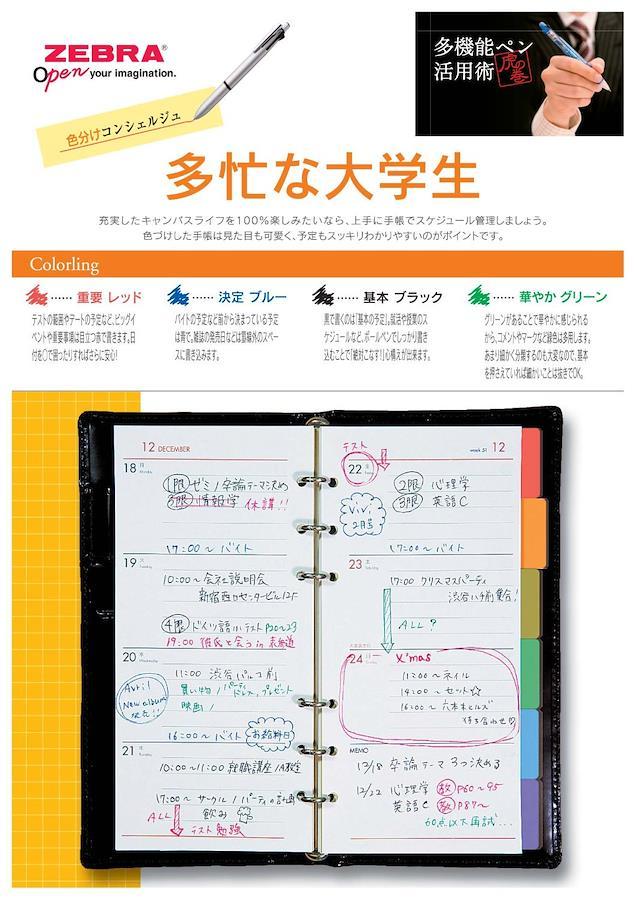 ZEBRA®
Open your imagination.
多機能ペン
活用術
虎の巻
色分けコンシェルジュ
多忙な大学生
充実したキャンパスライフを100%楽しみたいなら、上手に手帳でスケジュール管理しましょう。
色づけした手帳は見た目も可愛く、予定もスッキリわかりやすいのがポイントです。
Colorling
…… 重要 レッド
テストの範囲やデートの予定など、ビッグイ
ベントや重要事項は目立つ赤で書きます。日
付を〇で囲ったりすればさらに安心!
…… 決定 ブルー
バイトの予定など前から決まっている予定
は青で。雑誌の発売日などは罫線外のスペー
スに書き込みます。
…… 基本 ブラック
黒で書くのは「基本の予定」。就活や授業のス
ケジュールなど、ボールペンでしっかり書き
込むことで「絶対こなす!」心構えが出来ます。
…… 華やか グリーン
グリーンがあることで華やかに感じられる
から、コメントやマークなど緑色は多用します。
あまり細かく分類するのも大変なので、基本
を押さえていれば細かいことは抜きでOK。
12 DECEMBER
18 月
Monday
1限 ゼミ/卒論テーマ決め
3限 情報学 休講!!
17:00〜バイト
19 火
Tuesday
10:00〜会社説明会
新宿西口センタービル12F
4限 ドイツ語小テスト P20〜23
19:00 彼氏と会う in 表参道
20 水
Wednesday
11:00 渋谷パルコ前
買い物/パーティドレス、プレゼント
映画!
Avril
New album
発売!!
16:00〜バイト
お給料日
21 木
10:00〜11:00 就職講座/A教室
17:00〜サークル/パーティの計画
飲み
ALL
テスト勉強
week 51 12
テスト
22 金
2限 心理学
3限 英語C
ViVi
2月号
17:00〜バイト
23 土
17:00 クリスマスパーティ
渋谷ハチ前集合!
ALL?
24 日
X'mas
11:00〜ネイル
14:00〜セット☆
16:00〜六本木ヒルズ
待ち合わせ♡
MEMO
12/18 卒論テーマ3つ決める
12/22 心理学 教 P60〜95
英語C 教 P87〜
60点以下再試...